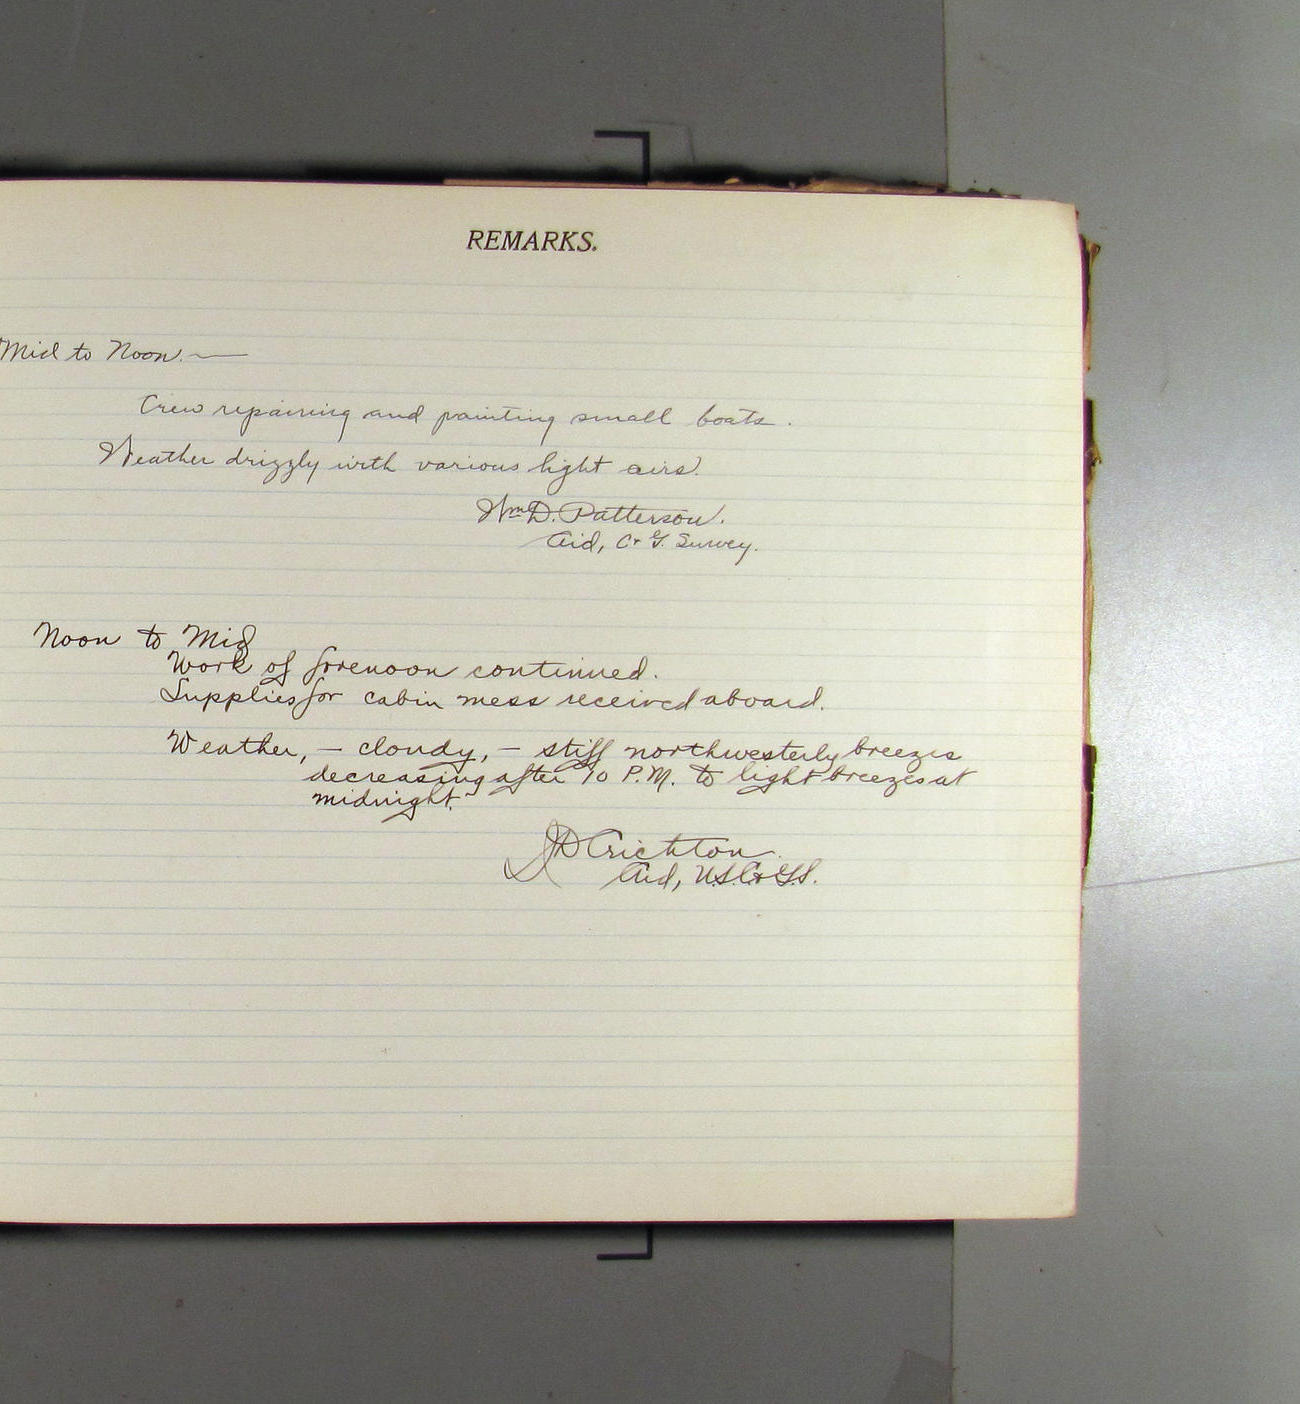 REMARKS.
Mid to Noon. —
Crew repairing and painting small boats.
Weather drizzly with various light airs.
Wm D. Patterson.
Aid, C & G. Survey.
Noon to Mid
Work of forenoon continued.
Supplies for cabin mess received aboard.
Weather, — cloudy, — stiff northwesterly breezes
decreasing after 10 P.M. to light breezes at
midnight.
JD Crichton.
Aid, U.S.C.& G.S.